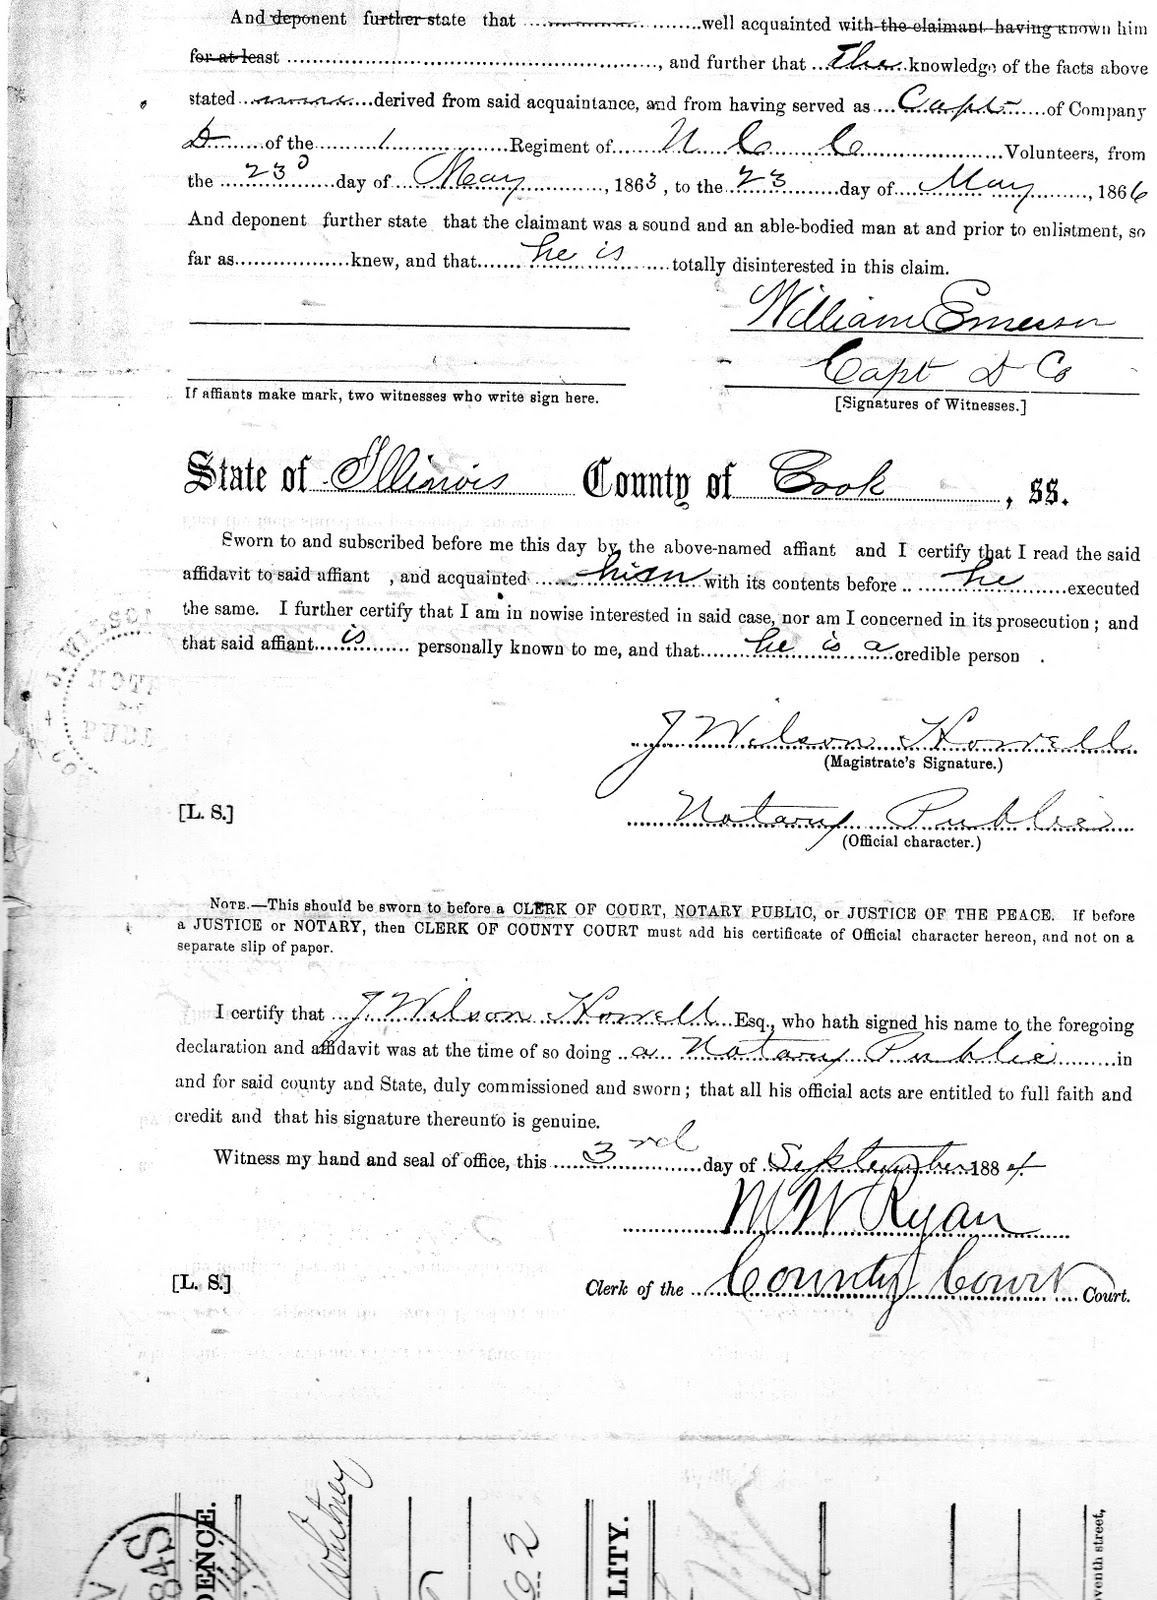 And deponent further state that ........................well acquainted with the claimant having known him
for at least ........................, and further that ...the...knowledge of the facts above
stated ........derived from said acquaintance, and from having served as ...Capt......of Company
D......of the........1........Regiment of.....N C C..........Volunteers, from
the ...23d......day of ...May......, 1863, to the ..23......day of...May......, 1866
And deponent further state that the claimant was a sound and an able-bodied man at and prior to enlistment, so
far as................knew, and that.....he is.....totally disinterested in this claim.
William Emerson
Capt D Co
If affiants make mark, two witnesses who write sign here.
[Signatures of Witnesses.]
State of Illinois County of Cook, ss.
Sworn to and subscribed before me this day by the above-named affiant and I certify that I read the said
affidavit to said affiant , and acquainted ......him with its contents before .. he......executed
the same. I further certify that I am in nowise interested in said case, nor am I concerned in its prosecution; and
that said affiant....is...... personally known to me, and that......he is a credible person .
J Wilson Howell
(Magistrate's Signature.)
NOT
PUBL
[L. S.]
Notary Public
(Official character.)
NOTE.—This should be sworn to before a CLERK OF COURT, NOTARY PUBLIC, or JUSTICE OF THE PEACE. If before
a JUSTICE or NOTARY, then CLERK OF COUNTY COURT must add his certificate of Official character hereon, and not on a
separate slip of paper.
I certify that J Wilson Howell...Esq., who hath signed his name to the foregoing
declaration and affidavit was at the time of so doing ..a Notary Public.......in
and for said county and State, duly commissioned and sworn; that all his official acts are entitled to full faith and
credit and that his signature thereunto is genuine.
Witness my hand and seal of office, this ....3rd......day of .September 1884
M W Ryan
[L. S.]
Clerk of the ..County Court... Court.
DENCE.
Whitney
62
LITY.
venth street,